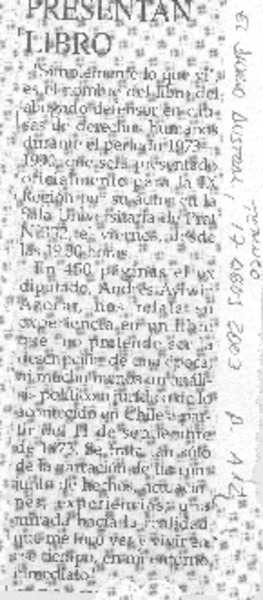 PRESENTAN
LIBRO
"Simplemente lo que vi"
es el nombre del libro del
abogado defensor en cau-
sas de derechos humanos
durante el período 1973-
1990, que será presentado
oficialmente para la IX
Región por su autor en la
Sala Universitaria de Prat
el viernes, desde
las 19.30 horas.
En 450 páginas el ex
diputado, Andrés Aylwin
Azócar, nos relata su
experiencia en un libro
que "no pretende ser la
descripción de una época,
ni mucho menos un análi-
sis político o jurídico de lo
acontecido en Chile a par-
tir del 11 de septiembre
de 1973. Se trata tan sólo
de la narración de un con-
junto de hechos, actuacio-
nes, experiencias, una
mirada hacia la realidad
que me tocó ver y vivir en
ese tiempo, en mi entorno
inmediato".
EL DIARIO AUSTRAL, 17 AGOS 2003 P. A12
Temuco